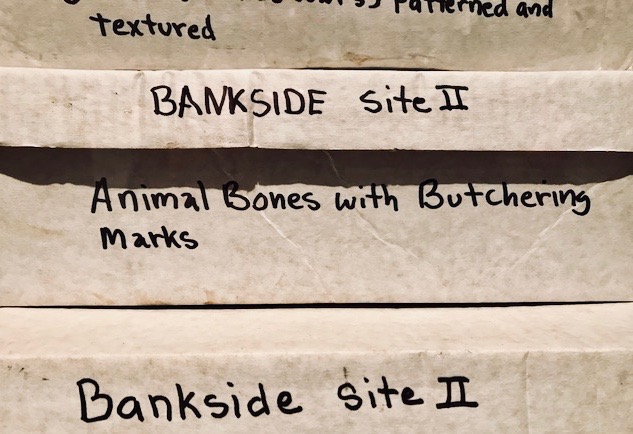 patterned and
textured
BANKSIDE Site II
Animal Bones with Butchering
Marks
Bankside Site II